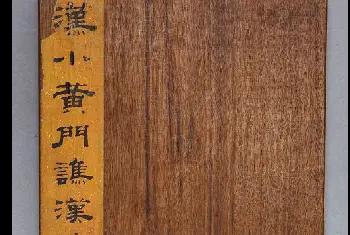 漢小黃門譙漢